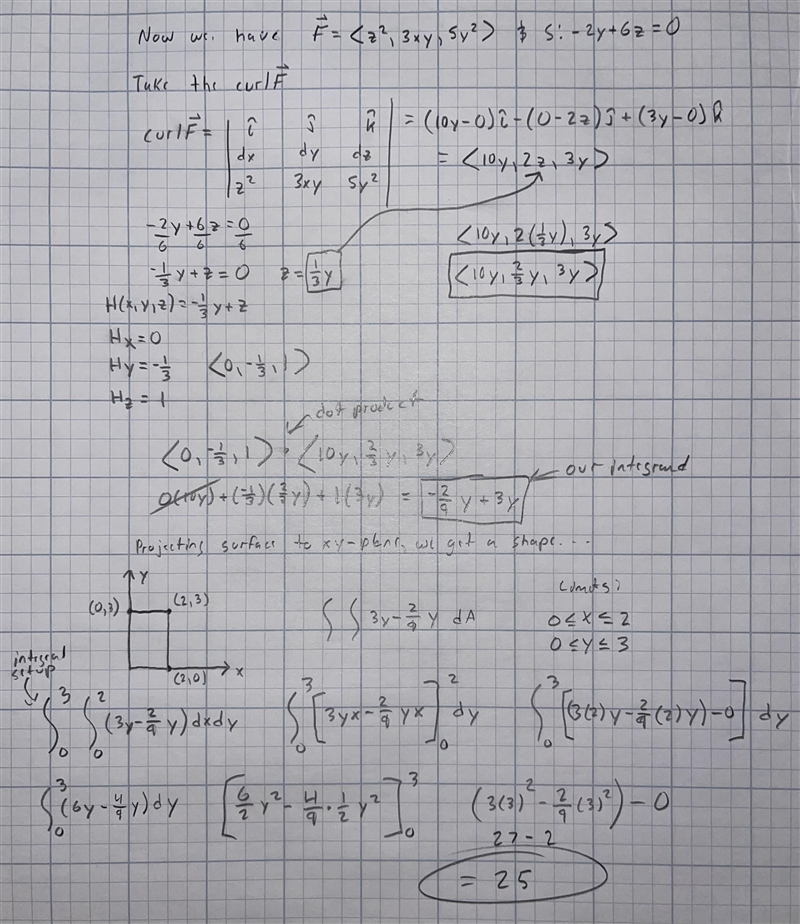 Now we have F⃗ = <z², 3xy, 5y²> & S: -2y+6z=0
Take the curl F⃗
curl F⃗ = | î ĵ k̂ | = (10y-0)î-(0-2z)ĵ+(3y-0)k̂
dx dy dz = <10y, 2z, 3y>
z² 3xy 5y²
-2y/6 + 6z/6 = 0/6 <10y, 2(1/3 y), 3y>
-1/3 y + z = 0 z = 1/3 y <10y, 2/3 y, 3y>
H(x,y,z) = -1/3 y + z
Hx = 0
Hy = -1/3 <0, -1/3, 1>
Hz = 1
dot product
<0, -1/3, 1> • <10y, 2/3 y, 3y>
our integrand
0(10y) + (-1/3)(2/3 y) + 1(3y) = -2/9 y + 3y
Projecting surface to xy-plane, we get a shape...
y
(0,3) (2,3)
(2,0) x
∫∫ 3y - 2/9 y dA
Limits:
0 ≤ x ≤ 2
0 ≤ y ≤ 3
integral setup
∫₀³ ∫₀² (3y - 2/9 y) dxdy ∫₀³ [3yx - 2/9 yx]₀² dy ∫₀³ [(3(2)y - 2/9 (2)y) - 0] dy
∫₀³ (6y - 4/9 y) dy [6/2 y² - 4/9 · 1/2 y²]₀³ (3(3)² - 2/9 (3)²) - 0
27 - 2
= 25